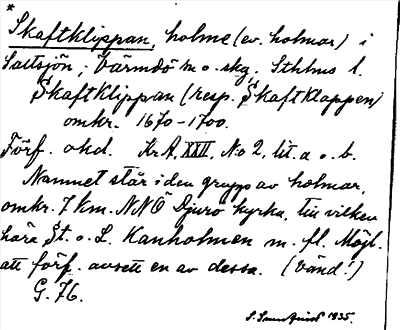 *
Skaftklippan, holme (ev. holmar) i
Saltsjön; Värmdö m. o. skg. Sthlms l.
Skaftklippan (resp. Skaftklappen)
omkr. 1670-1700.
Förf. okd. Kr.A, XXII, No 2, lit. a o. b.
Namnet står i den grupp av holmar,
omkr. 7 km. NNO Djurö kyrka, till vilken
höra St. o. L. Kanholmen m. fl. Möjl.
att förf. avsett en av dessa. (Vänd!)
G. 76.
1935.